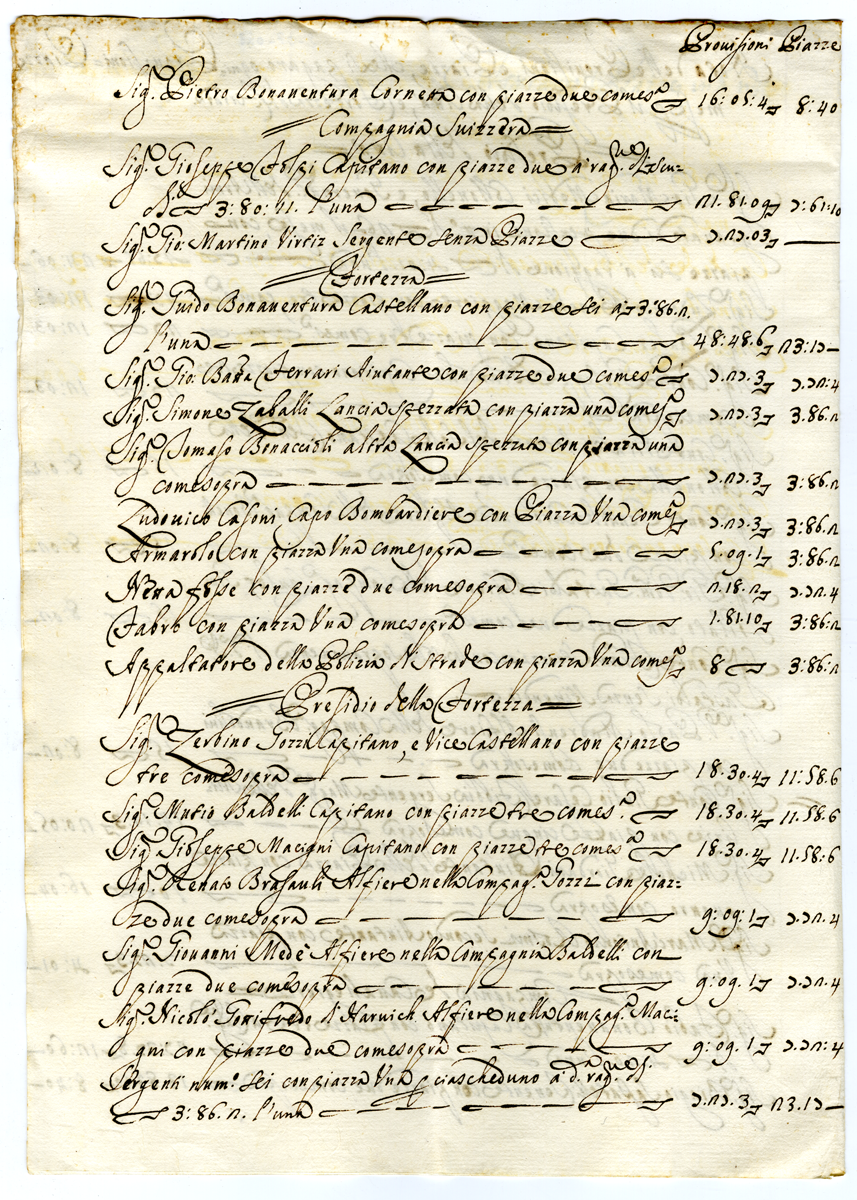 Provisioni Piazze
Sig.r Pietro Bonaventura Cornetta con piazze due comes.a 16:05:4 8:40
Compagnia Svizzera
Sig.r Gioseppe Folpi Capitano con piazze due a rag.ne di scu-
di 3:80:11. l'una 21.81.09 7:61:10
Sig.r Gio: Martino Virtiz Sergente senza Piazze 7.27.03
Fortezza
Sig.r Guido Bonaventura Castellano con piazze sei a 3:86.2.
l'una 48:48.6 23:17
Sig.r Gio: Batta Ferrari Aiutante con piazze due comes.a 7.27.3 7.72:4
Sig.r Simone Zaballi Lancia spezzata con piazza una comes.a 7.27.3 3.86.2
Sig.r Tomaso Bonaccioli altra Lancia spezzata con piazza una
comesopra 7.27.3 3:86.2
Ludovico Casoni Capo Bombardiere con Piazza Una comes.a 7.27.3 3:86.2
Armarolo con piazza Una comesopra 5.09.1 3:86.2
Netta fosse con piazze due comesopra 2.18.2 7.72.4
Fabro con piazza Una comesopra 1.81.10 3:86:2
Appaltatore della Polizia di strade con piazza Una comes.a 8 3:86.2
Presidio della Fortezza
Sig.r Zerbino Gozzi Capitano, e Vice Castellano con piazze
tre comesopra 18.30.4 11:58.6
Sig.r Mutio Baldelli Capitano con piazze tre comes.a 18.30.4 11.58:6
Sig.r Gioseppe Macigni Capitano con piazze tre comes.a 18.30.4 11.58:6
Sig.r Renato Brasauli Alfiere nella Compag.a Gozzi con piaz-
ze due comesopra 9:09:1 7.72.4
Sig.r Giovanni Medè Alfiere nella Compagnia Baldelli con
piazze due comesopra 9:09.1 7.72.4
Sig.r Nicolò Gonifredo d'Harvich Alfiere nella Compag.a Maci-
gni con piazze due comesopra 9:09.1 7.72:4
Sergenti num.o sei con piazza Una ciascheduno a d.a rag.ne di
3:86.2. l'una 7.27.3 23.17